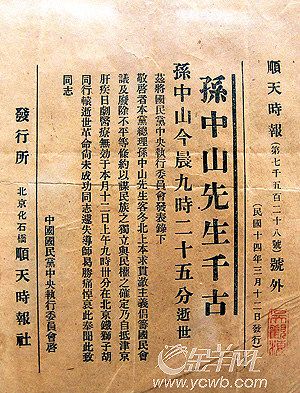 順天時報（第七千五百二十八號）號外
（民國十四年三月十二日發行）
孫中山先生千古
孫中山今晨九時二十五分逝世
茲將國民黨中央執行委員會發表錄下
敬啓者本黨總理孫中山先生客冬北上本求貫澈主義倡籌國民會
議及廢除不平等條約以謀民族之獨立與民權之確定乃自抵津京
肝疾日劇醫療無効于本月十二日上午九時卅分在北京鐵獅子胡
同行轅逝世革命尚未成功同志遽失導師曷勝痛悼哀此奉聞此致
同志
中國國民黨中央執行委員會啓
發行所 北京化石橋 順天時報社
金羊网
www.ycwb.com